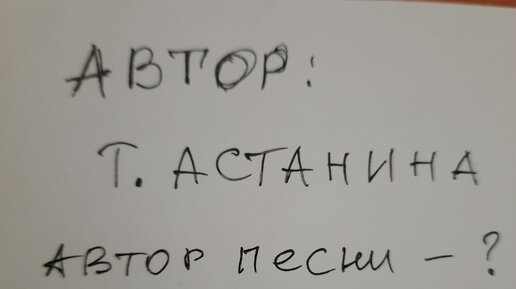 АВТОР:
Т. АСТАНИНА
АВТОР ПЕСНИ - ?